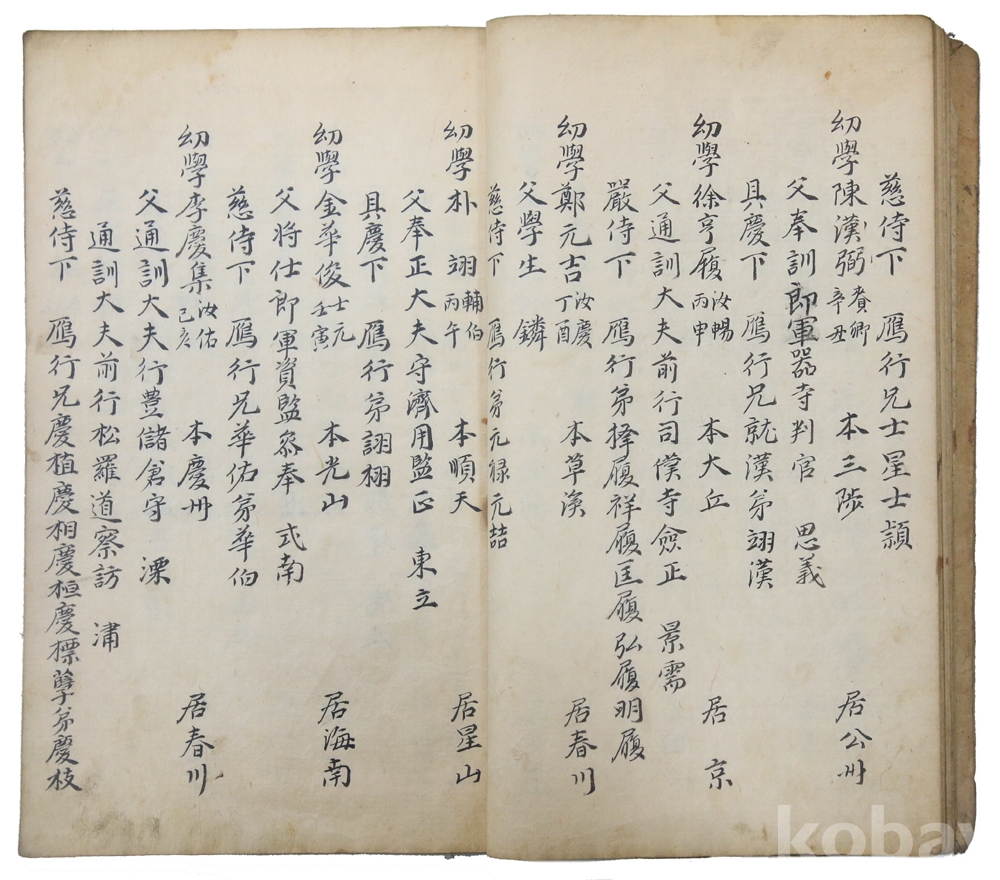 慈侍下 鴈行兄士星士頴
幼學陳漢弼 賚卿 辛丑 本三陟 居公州
父奉訓郎軍器寺判官 思義
具慶下 鴈行兄就漢弟翊漢
幼學徐亨履 汝暢 丙申 本大丘 居京
父通訓大夫前行司僕寺僉正 景需
嚴侍下 鴈行弟擇履祥履匡履弘履明履
幼學鄭元吉 汝慶 丁酉 本草溪 居春川
父學生 鏻
慈侍下 鴈行弟元祿元喆
幼學朴翊 輔伯 丙午 本順天 居星山
父奉正大夫守濟用監正 東立
具慶下 鴈行弟詡栩
幼學金華俊 士元 壬寅 本光山 居海南
父將仕郎軍資監叅奉 式南
慈侍下 鴈行兄華佑弟華伯
幼學李慶集 汝佑 己亥 本慶州 居春川
父通訓大夫行豊儲倉守 溧
通訓大夫前行松羅道察訪 浦
慈侍下 鴈行兄慶植慶相慶桓慶標孽弟慶枝
kobay